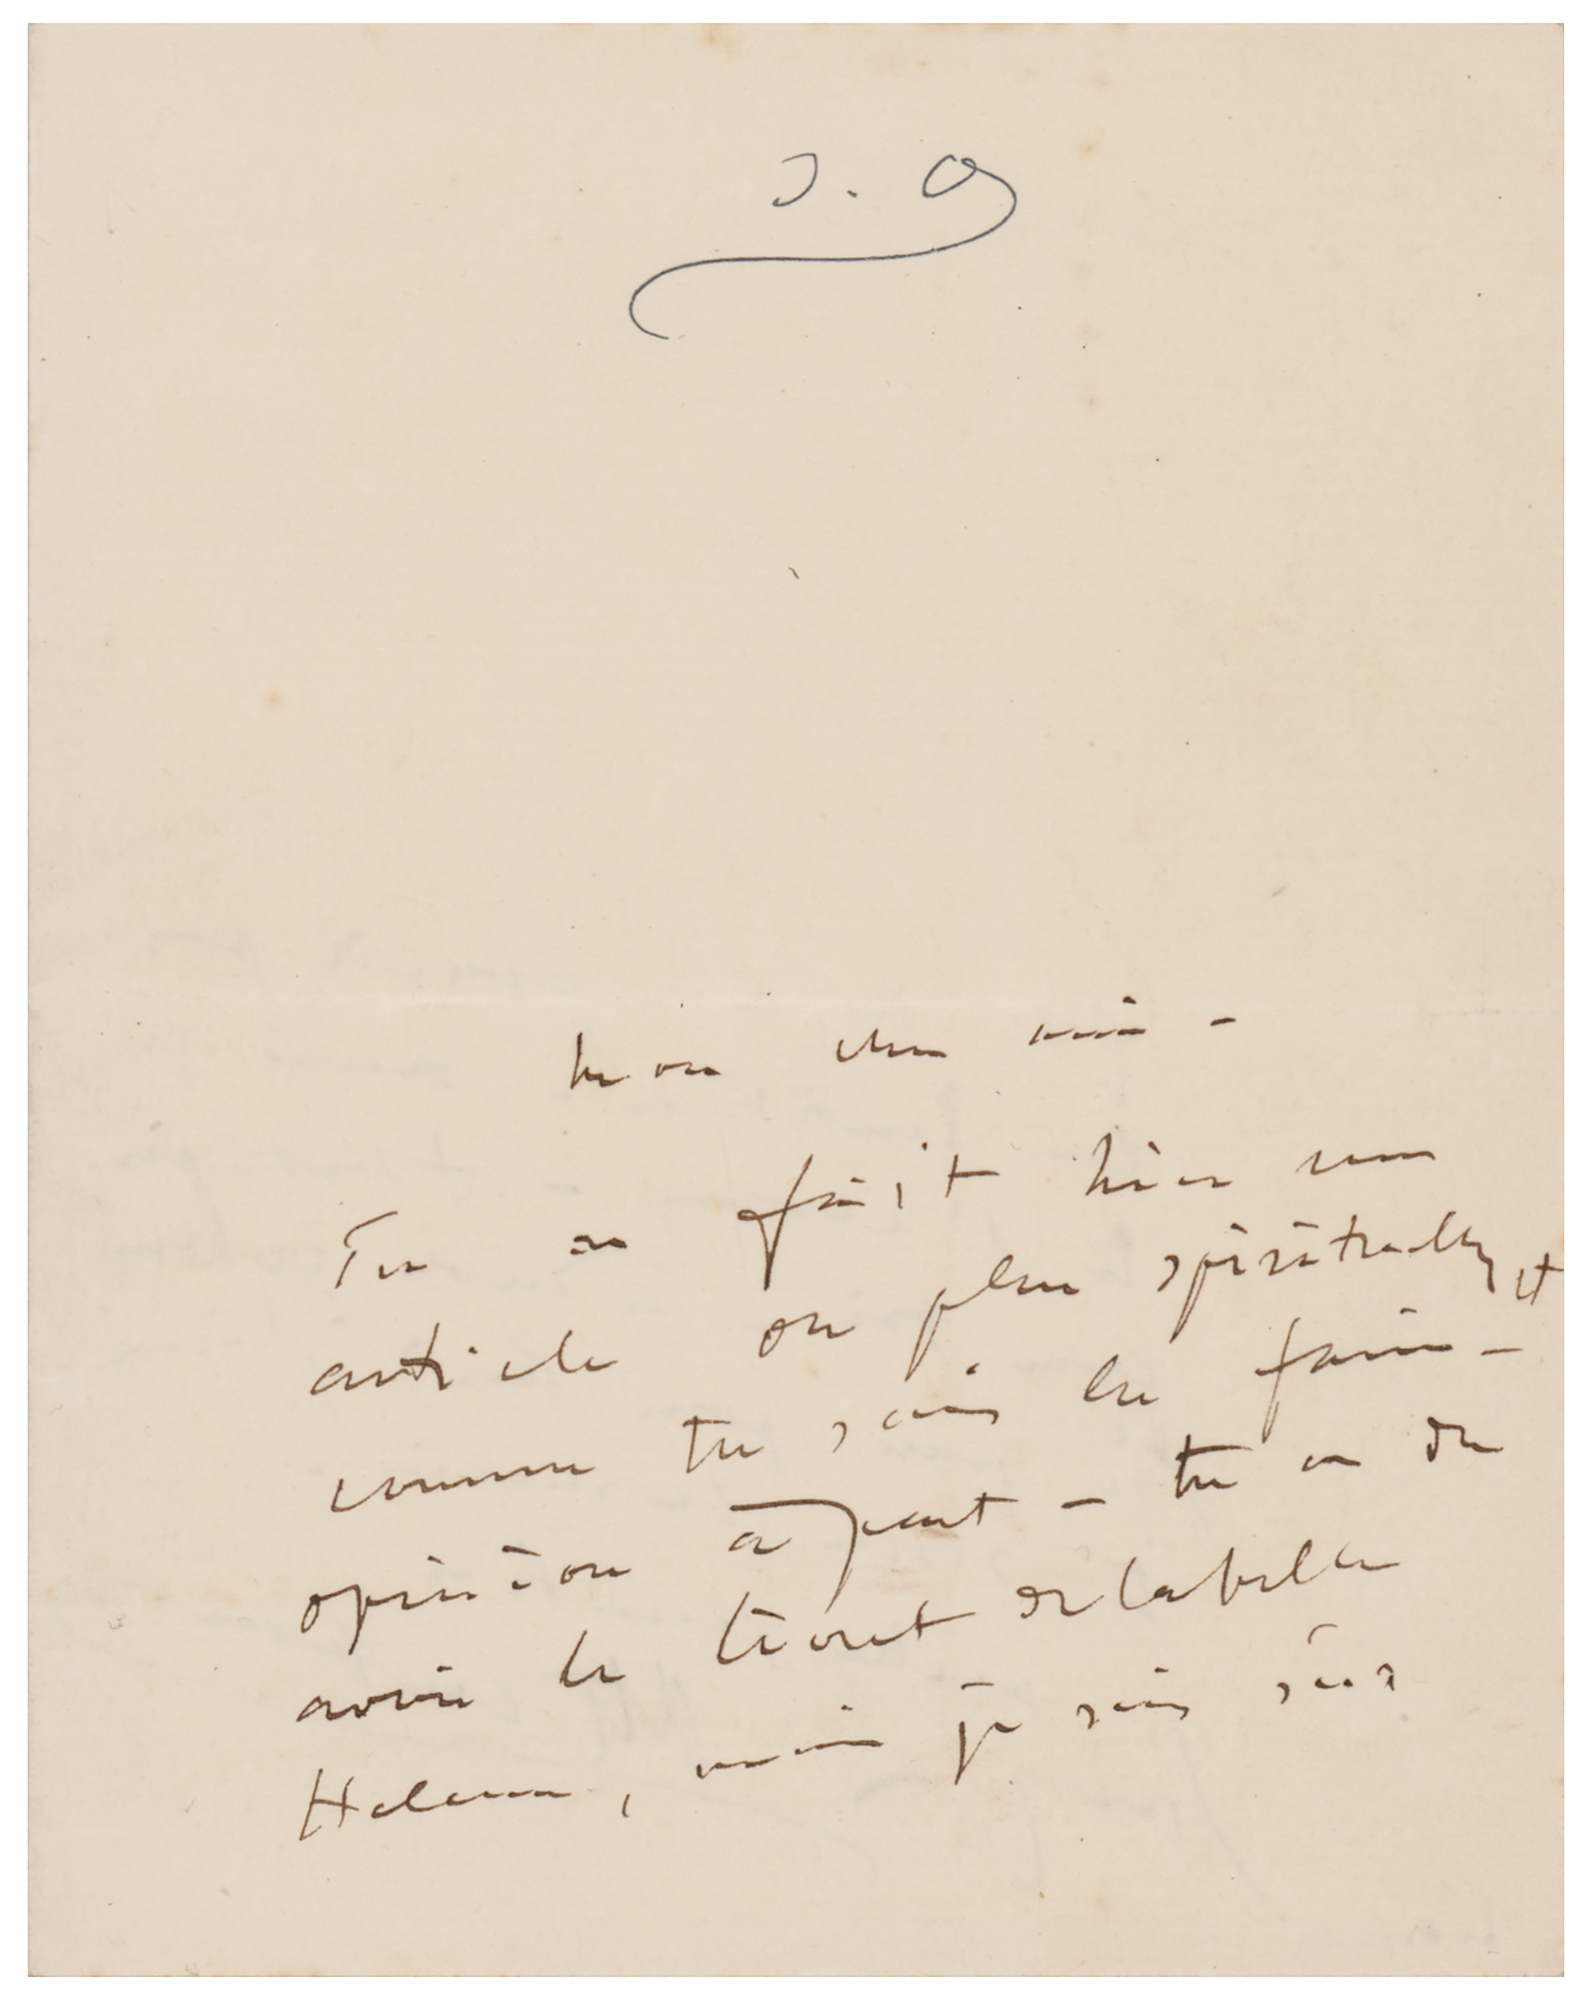 J. O
Mon cher ami -
Tu as fait hier un
article on plus spirituels, et
comme tu sais les faire -
opinion à part - tu as du
avoir le livret de la belle
Helene, mais je suis sûr